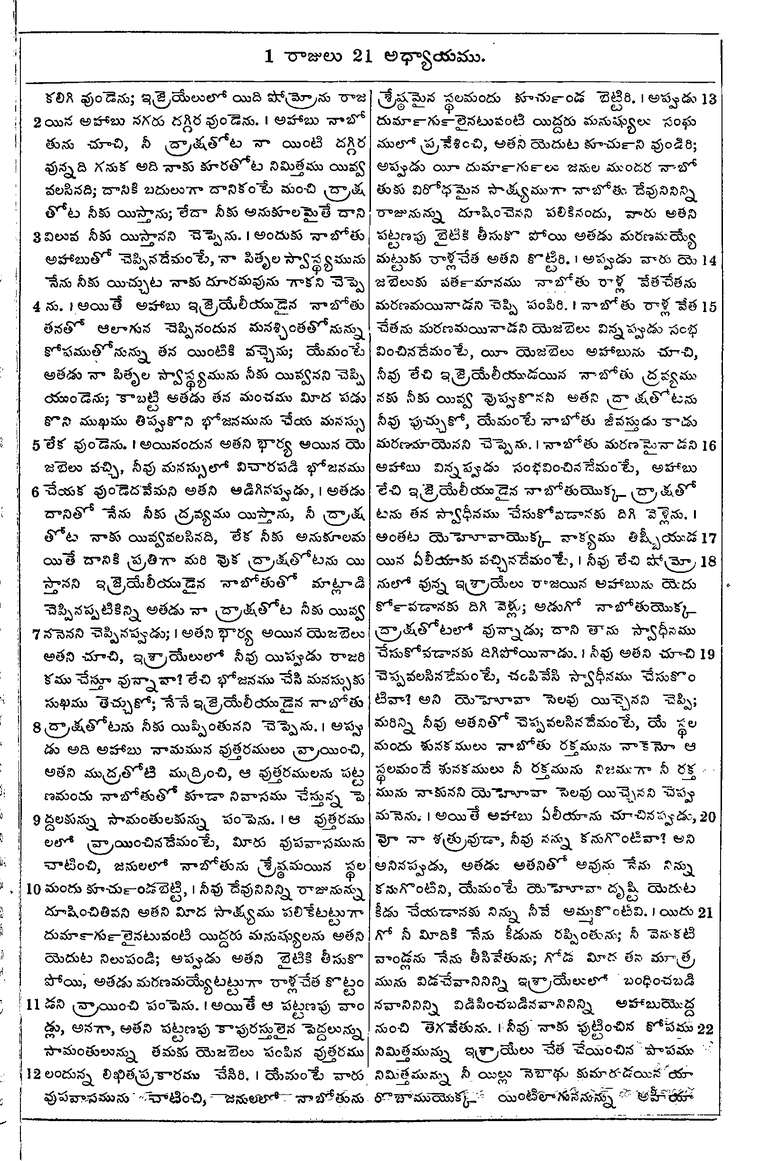 1 రాజులు 21 అధ్యాయము.
కలిగి వుండెను; ఇజ్రెయేలులో యిది షోమ్రోను రాజ
2 యిన అహాబు నగరు దగ్గిర వుండెను. । అహాబు నాబో
తును చూచి, నీ ద్రాక్షతోట నా యింటి దగ్గిర
వున్నది గనుక అది నాకు కూరతోట నిమిత్తము యివ్వ
వలసినది; దానికి బదులుగా దానికంటే మంచి ద్రాక్ష
తోట నీకు యిస్తాను; లేదా నీకు అనుకూలమైతే దాని
3 విలువ నీకు యిస్తానని చెప్పెను. । అందుకు నాబోతు
అహాబుతో చెప్పినదేమంటే, నా పితృల స్వాస్థ్యమును
నేను నీకు యిచ్చుట నాకు దూరమవును గాకని చెప్పె
4 ను. । అయితే అహాబు ఇజ్రెయేలీయుడైన నాబోతు
తనతో ఆలాగున చెప్పినందున మనశ్చింతతోనున్ను
కోపముతోనున్ను తన యింటికి వచ్చెను; యేమంటే
అతడు నా పితృల స్వాస్థ్యమును నీకు యివ్వనని చెప్పి
యుండెను; కాబట్టి అతడు తన మంచము మీద పడు
కొని ముఖము తిప్పుకొని భోజనమును చేయ మనస్సు
5 లేక వుండెను. । అయినందున అతని భార్య అయిన యె
జబెలు వచ్చి, నీవు మనస్సులో విచారపడి భోజనము
6 చేయక వుండెదవేమని అతని అడిగినప్పుడు, । అతడు
దానితో నేను నీకు ద్రవ్యము యిస్తాను, నీ ద్రాక్ష
తోట నాకు యివ్వవలసినది, లేక నీకు అనుకూలమ
యితే దానికి ప్రతిగా మరి వుక ద్రాక్షతోటను యి
స్తానని ఇజ్రెయేలీయుడైన నాబోతుతో మాట్లాడి
చెప్పినప్పటికిన్ని అతడు నా ద్రాక్షతోట నీకు యివ్వ
7 నననెని చెప్పినప్పుడు; । అతని భార్య అయిన యెజబెలు
అతని చూచి, ఇశ్రాయేలులో నీవు యిప్పుడు రాజరి
కము చేస్తూ వున్నావా? లేచి భోజనము చేసి మనస్సుకు
సుఖము తెచ్చుకో; నేనే ఇజ్రెయేలీయుడైన నాబోతు
8 ద్రాక్షతోటను నీకు యిప్పింతునని చెప్పెను. । అప్పు
డు అది అహాబు నామమున వుత్తరములు వ్రాయించి,
అతని ముద్రతోటి ముద్రించి, ఆ వుత్తరములను పట్ట
ణమందు నాబోతుతో కూడా నివాసము చేస్తున్న పె
9 ద్దలకున్ను సామంతులకున్ను పంపెను. । ఆ వుత్తరము
లలో వ్రాయించినదేమంటే, మీరు వుపవాసమును
చాటించి, జనులలో నాబోతును శ్రేష్ఠమయిన స్థల
10 మందు కూచుండబెట్టి, । నీవు దేవునినిన్ని రాజునున్ను
దూషించితివని అతని మీద సాక్ష్యము పలికేటట్టుగా
దుమార్గులైనటువంటి యిద్దరు మనుష్యులను అతని
యెదుట నిలుపండి; అప్పుడు అతని బైటికి తీసుకొ
పోయి, అతడు మరణమయ్యేటట్టుగా రాళ్లచేత కొట్టం
11 డని వ్రాయించి పంపెను. । అయితే ఆ పట్టణపు వాం
డ్లు, అనగా, అతని పట్టణపు కాపురస్తులైన పెద్దలున్ను
సామంతులున్ను తమకు యెజబెలు పంపిన వుత్తరము
12 లందున్న లిఖితప్రకారము చేసిరి. । యేమంటే వారు
వుపవాసమును చాటించి, జనులలో నాబోతును
శ్రేష్ఠమైన స్థలమందు కూచుండ బెట్టిరి. । అప్పుడు 13
దుమార్గులైనటువంటి యిద్దరు మనుష్యులు సంఘ
ములో ప్రవేశించి, అతని యెదుట కూచుని వుండిరి;
అప్పుడు యీ దుమార్గులు జనుల ముందర నాబో
తుకు విరోధమైన సాక్ష్యముగా నాబోతు దేవునినిన్ని
రాజునున్ను దూషించెనని పలికినందు, వారు అతని
పట్టణపు బైటికి తీసుకొ పోయి అతడు మరణమయ్యే
మట్టుకు రాళ్లచేత అతని కొట్టిరి. । అప్పుడు వారు యె 14
జబెలుకు వర్తమానము నాబోతు రాళ్ల చేతచేతను
మరణమయినాడని చెప్పి పంపిరి. । నాబోతు రాళ్ల చేత 15
చేతను మరణమయినాడని యెజబెలు విన్నప్పుడు సంభ
వించినదేమంటే, యీ యెజబెలు అహాబును చూచి,
నీవు లేచి ఇజ్రెయేలీయుడయిన నాబోతు ద్రవ్యము
నకు నీకు యివ్వ వుప్పుకొనని అతని ద్రాక్షతోటను
నీవు పుచ్చుకో, యేమంటే నాబోతు జీవస్తుడు కాడు
మరణమాయెనని చెప్పెను. । నాబోతు మరణమైనాడని 16
అహాబు విన్నప్పుడు సంభవించినదేమంటే, అహాబు
లేచి ఇజ్రెయేలీయుడైన నాబోతుయొక్క ద్రాక్షతో
టను తన స్వాధీనము చేసుకోవడానకు దిగి వెళ్లెను. ।
అంతట యెహోవాయొక్క వాక్యము తిష్బీయుడ 17
యిన ఏలీయాకు వచ్చినదేమంటే, । నీవు లేచి షోమ్రో 18
నులో వున్న ఇశ్రాయేలు రాజయిన అహాబును యెదు
ర్కోవడానకు దిగి వెళ్లు; అడుగో నాబోతుయొక్క
ద్రాక్షతోటలో వున్నాడు; దాని తాను స్వాధీనము
చేసుకోవడానకు దిగిపోయినాడు. । నీవు అతని చూచి 19
చెప్పవలసినదేమంటే, చంపివేసి స్వాధీనము చేసుకొం
టివా? అని యెహోవా సెలవు యిచ్చెనని చెప్పి;
మరిన్ని నీవు అతనితో చెప్పవలసినదేమంటే, యే స్థల
మందు శునకములు నాబోతు రక్తమును నాకెనో ఆ
స్థలమందే శునకములు నీ రక్తమును నిజముగా నీ రక్త
మును నాకునని యెహోవా సెలవు యిచ్చెనని చెప్పు
మనెను. । అయితే అహాబు ఏలీయాను చూచినప్పుడు, 20
వో నా శత్రువుడా, నీవు నన్ను కనుగొంటివా? అని
అనినప్పుడు, అతడు అతనితో అవును నేను నిన్ను
కనుగొంటిని, యేమంటే యెహోవా దృష్టి యెదుట
కీడు చేయడానకు నిన్ను నీవే అమ్ముకొంటివి. । యిదు 21
గో నీ మీదికి నేను కీడును రప్పింతును; నీ వెనకటి
వాండ్లను నేను తీసివేతును; గోడ మీద తన మూత్ర
మును విడచేవానినిన్ని ఇశ్రాయేలులో బంధించబడి
నవానినిన్ని విడిపించబడినవానినిన్ని అహాబుయొద్ద
నుంచి తెగవేతును. । నీవు నాకు పుట్టించిన కోపము 22
నిమిత్తమున్ను ఇశ్రాయేలు చేత చేయించిన పాపము
నిమిత్తమున్ను నీ యిల్లు నెబాథు కుమారుడయిన యా
రొబాముయొక్క యింటిలాగుననున్ను అహీయా